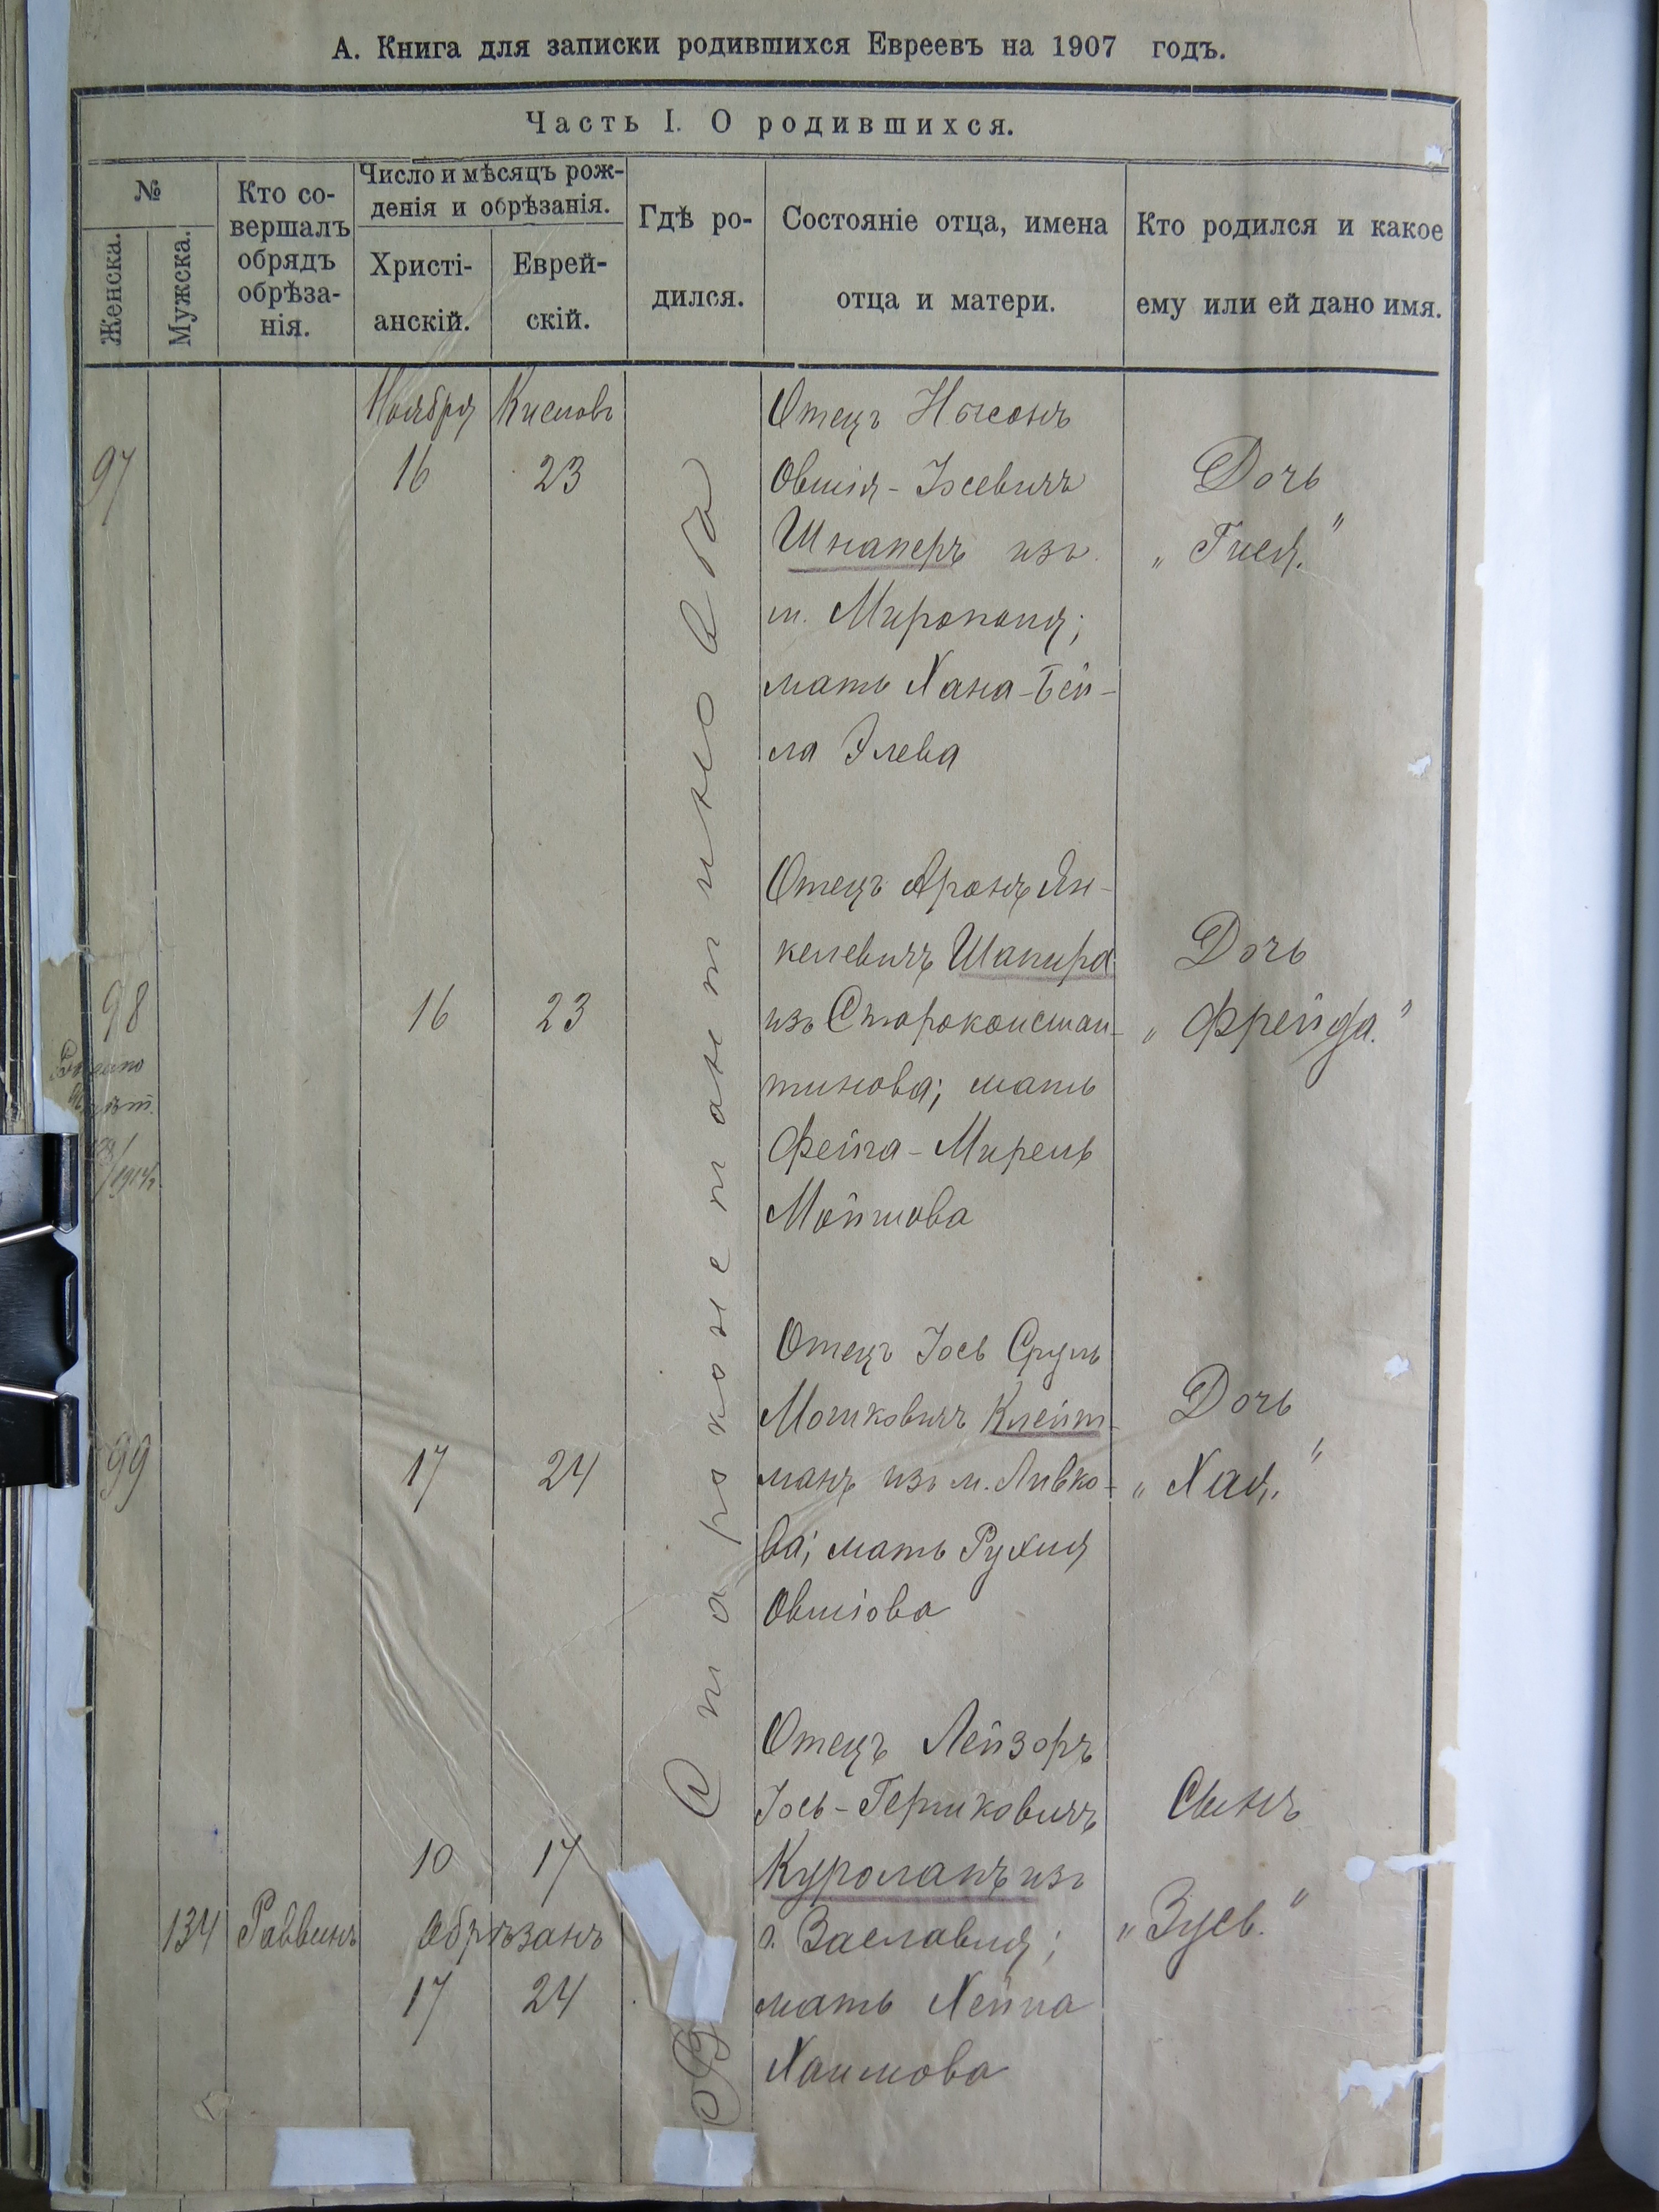 А. Книга для записки родившихся Евреевъ на 1907 годъ.
Часть I. О родившихся.
№
Женска.
Мужска.
Кто со-
вершалъ
обрядъ
обрѣза-
нія.
Число и мѣсяцъ рож-
денія и обрѣзанія.
Христі-
анскій.
Еврей-
скій.
Гдѣ ро-
дился.
Состояніе отца, имена
отца и матери.
Кто родился и какое
ему или ей дано имя.
Ноября Кисловъ
97
16 23
Отецъ Нысонъ
Овшія-Іосевичъ
Шнаперъ изъ
м. Мирополя;
мать Хана-Бей-
ла Элева
Дочь
„Гися."
98
16 23
Отецъ Аронъ Ян-
келевичъ Шапира
изъ Староконстан-
тинова; мать
Фейга-Мирель
Мойшова
Дочь
„Фрейда."
99
17 24
Отецъ Іось Сруль
Мошковичъ Клейт-
манъ изъ м. Ливко-
ва; мать Рухля
Овшіова
Дочь
„Хая."
134 Раввинъ
10 17
Обрѣзанъ
17 24
Отецъ Лейзоръ
Іось-Гершковичъ
Куроланъ изъ
г. Заславля;
мать Хейна
Хаимова
Сынъ
„Зусь."
Въ Староконстантиновѣ